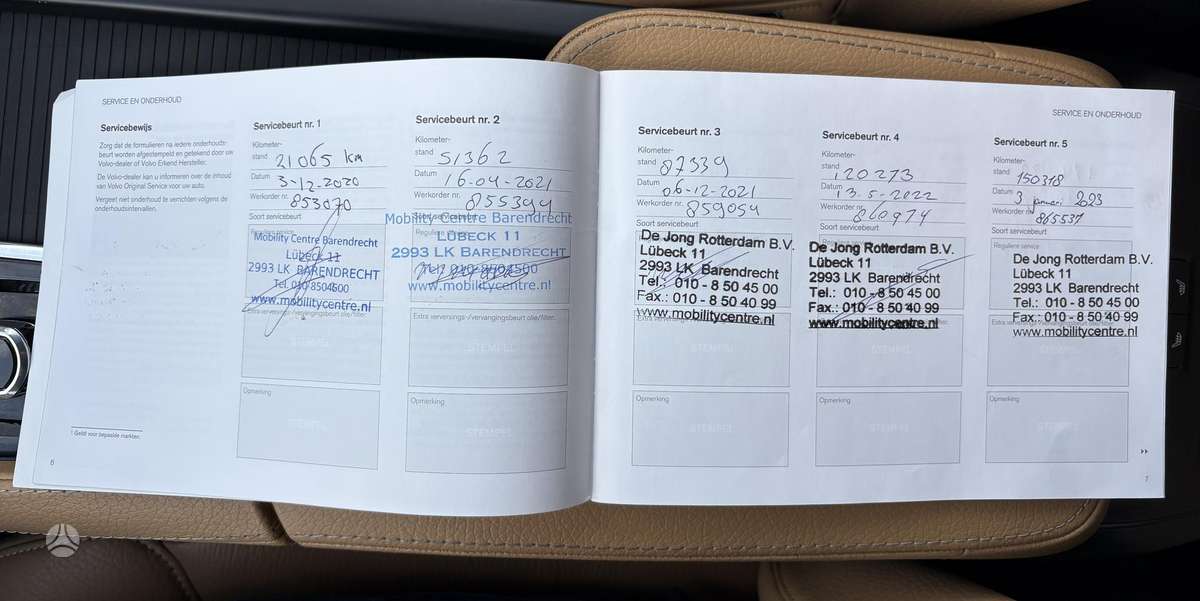 SERVICE EN ONDERHOUD
Servicebewijs
Zorg dat de formulieren na iedere onderhouds-
beurt worden afgestempeld en getekend door uw
Volvo-dealer of Volvo Erkend Hersteller.
De Volvo-dealer kan u informeren over de inhoud
van Volvo Original Service voor uw auto.
Vergeet niet onderhoud te verrichten volgens de
onderhoudsintervallen.
1 Geldt voor bepaalde markten.
6
Servicebeurt nr. 1
Kilometer-
stand 21065 km
Datum 3-12-2020
Werkorder nr. 853070
Soort servicebeurt
Reguliere service:
Mobility Centre Barendrecht
Lübeck 11
2993 LK BARENDRECHT
Tel. 010-8504500
www.mobilitycentre.nl
Extra verversings-/vervangingsbeurt olie/filter:
STEMPEL
Opmerking
STEMPEL
Servicebeurt nr. 2
Kilometer-
stand 51362
Datum 16-04-2021
Werkorder nr. 855394
Soort servicebeurt
Mobility Centre Barendrecht
Reguliere service:
LÜBECK 11
2993 LK BARENDRECHT
Tel. 010-8504500
www.mobilitycentre.nl
Extra verversings-/vervangingsbeurt olie/filter:
STEMPEL
Opmerking
STEMPEL
SERVICE EN ONDERHOUD
Servicebeurt nr. 3
Kilometer-
stand 87339
Datum 06-12-2021
Werkorder nr. 859054
Soort servicebeurt
De Jong Rotterdam B.V.
Lübeck 11
2993 LK Barendrecht
Tel.: 010 - 8 50 45 00
Fax.: 010 - 8 50 40 99
www.mobilitycentre.nl
STEMPEL
Opmerking
STEMPEL
Servicebeurt nr. 4
Kilometer-
stand 120273
Datum 13-5-2022
Werkorder nr. 860974
Soort servicebeurt
De Jong Rotterdam B.V.
Lübeck 11
2993 LK Barendrecht
Tel.: 010 - 8 50 45 00
Fax.: 010 - 8 50 40 99
www.mobilitycentre.nl
STEMPEL
Opmerking
STEMPEL
Servicebeurt nr. 5
Kilometer-
stand 150318
Datum 3 januari 2023
Werkorder nr. 865537
Soort servicebeurt
Reguliere service:
De Jong Rotterdam B.V.
Lübeck 11
2993 LK Barendrecht
Tel.: 010 - 8 50 45 00
Fax.: 010 - 8 50 40 99
www.mobilitycentre.nl
STEMPEL
Opmerking
STEMPEL
7